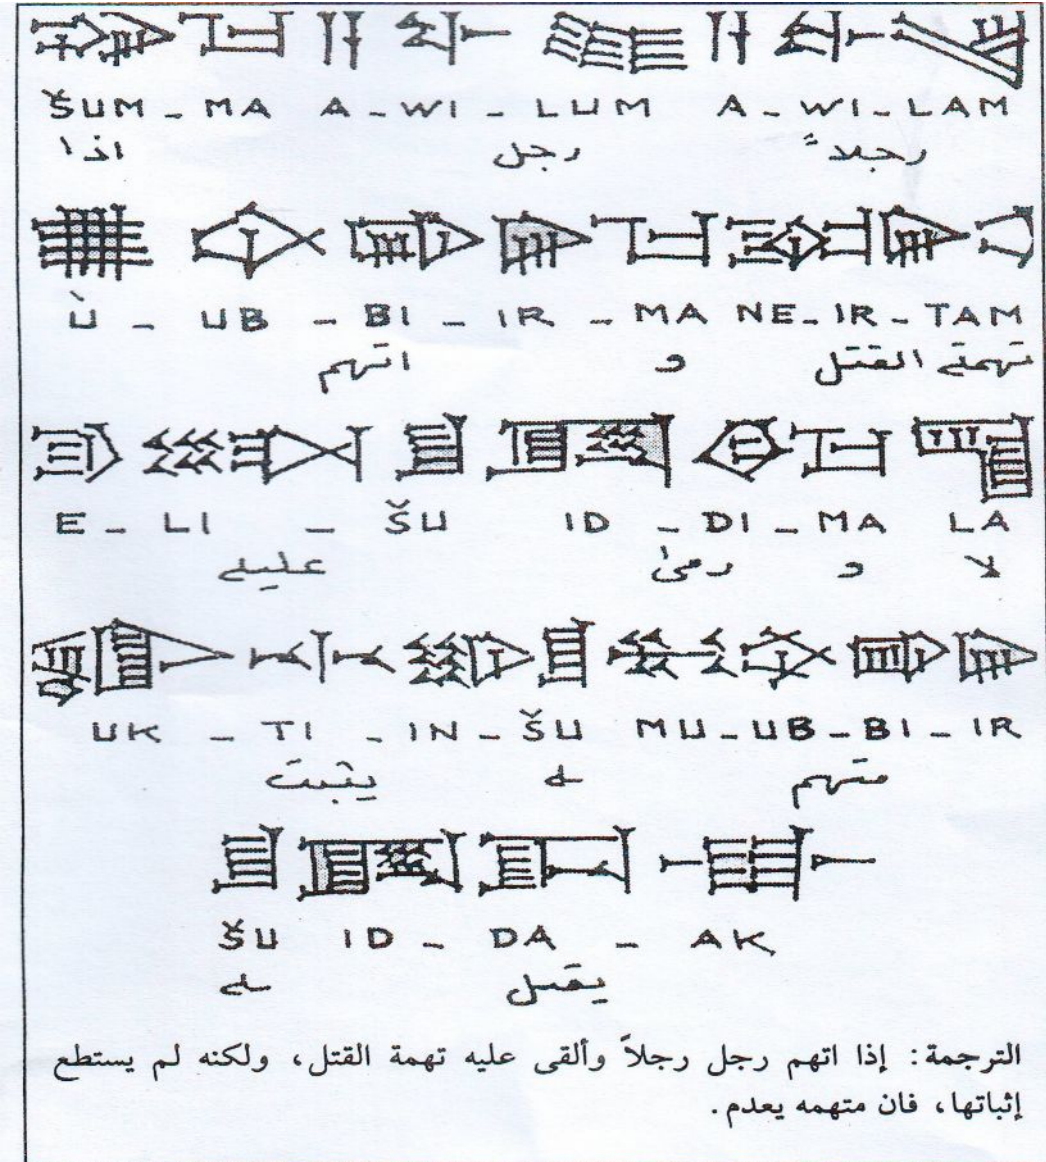 ŠUM - MA A - WI - LUM A - WI - LAM
اذا رجل رجلاً
Ù - UB - BI - IR - MA NE - IR - TAM
اتهم و تهمة القتل
E - LI - ŠU ID - DI - MA LA
عليه رمىٰ و لا
UK - TI - IN - ŠU MU - UB - BI - IR
يثبت ـه متهم
ŠU ID - DA - AK
ـه يقتل
الترجمة: إذا اتهم رجل رجلاً وألقى عليه تهمة القتل، ولكنه لم يستطع
إثباتها، فان متهمه يعدم.